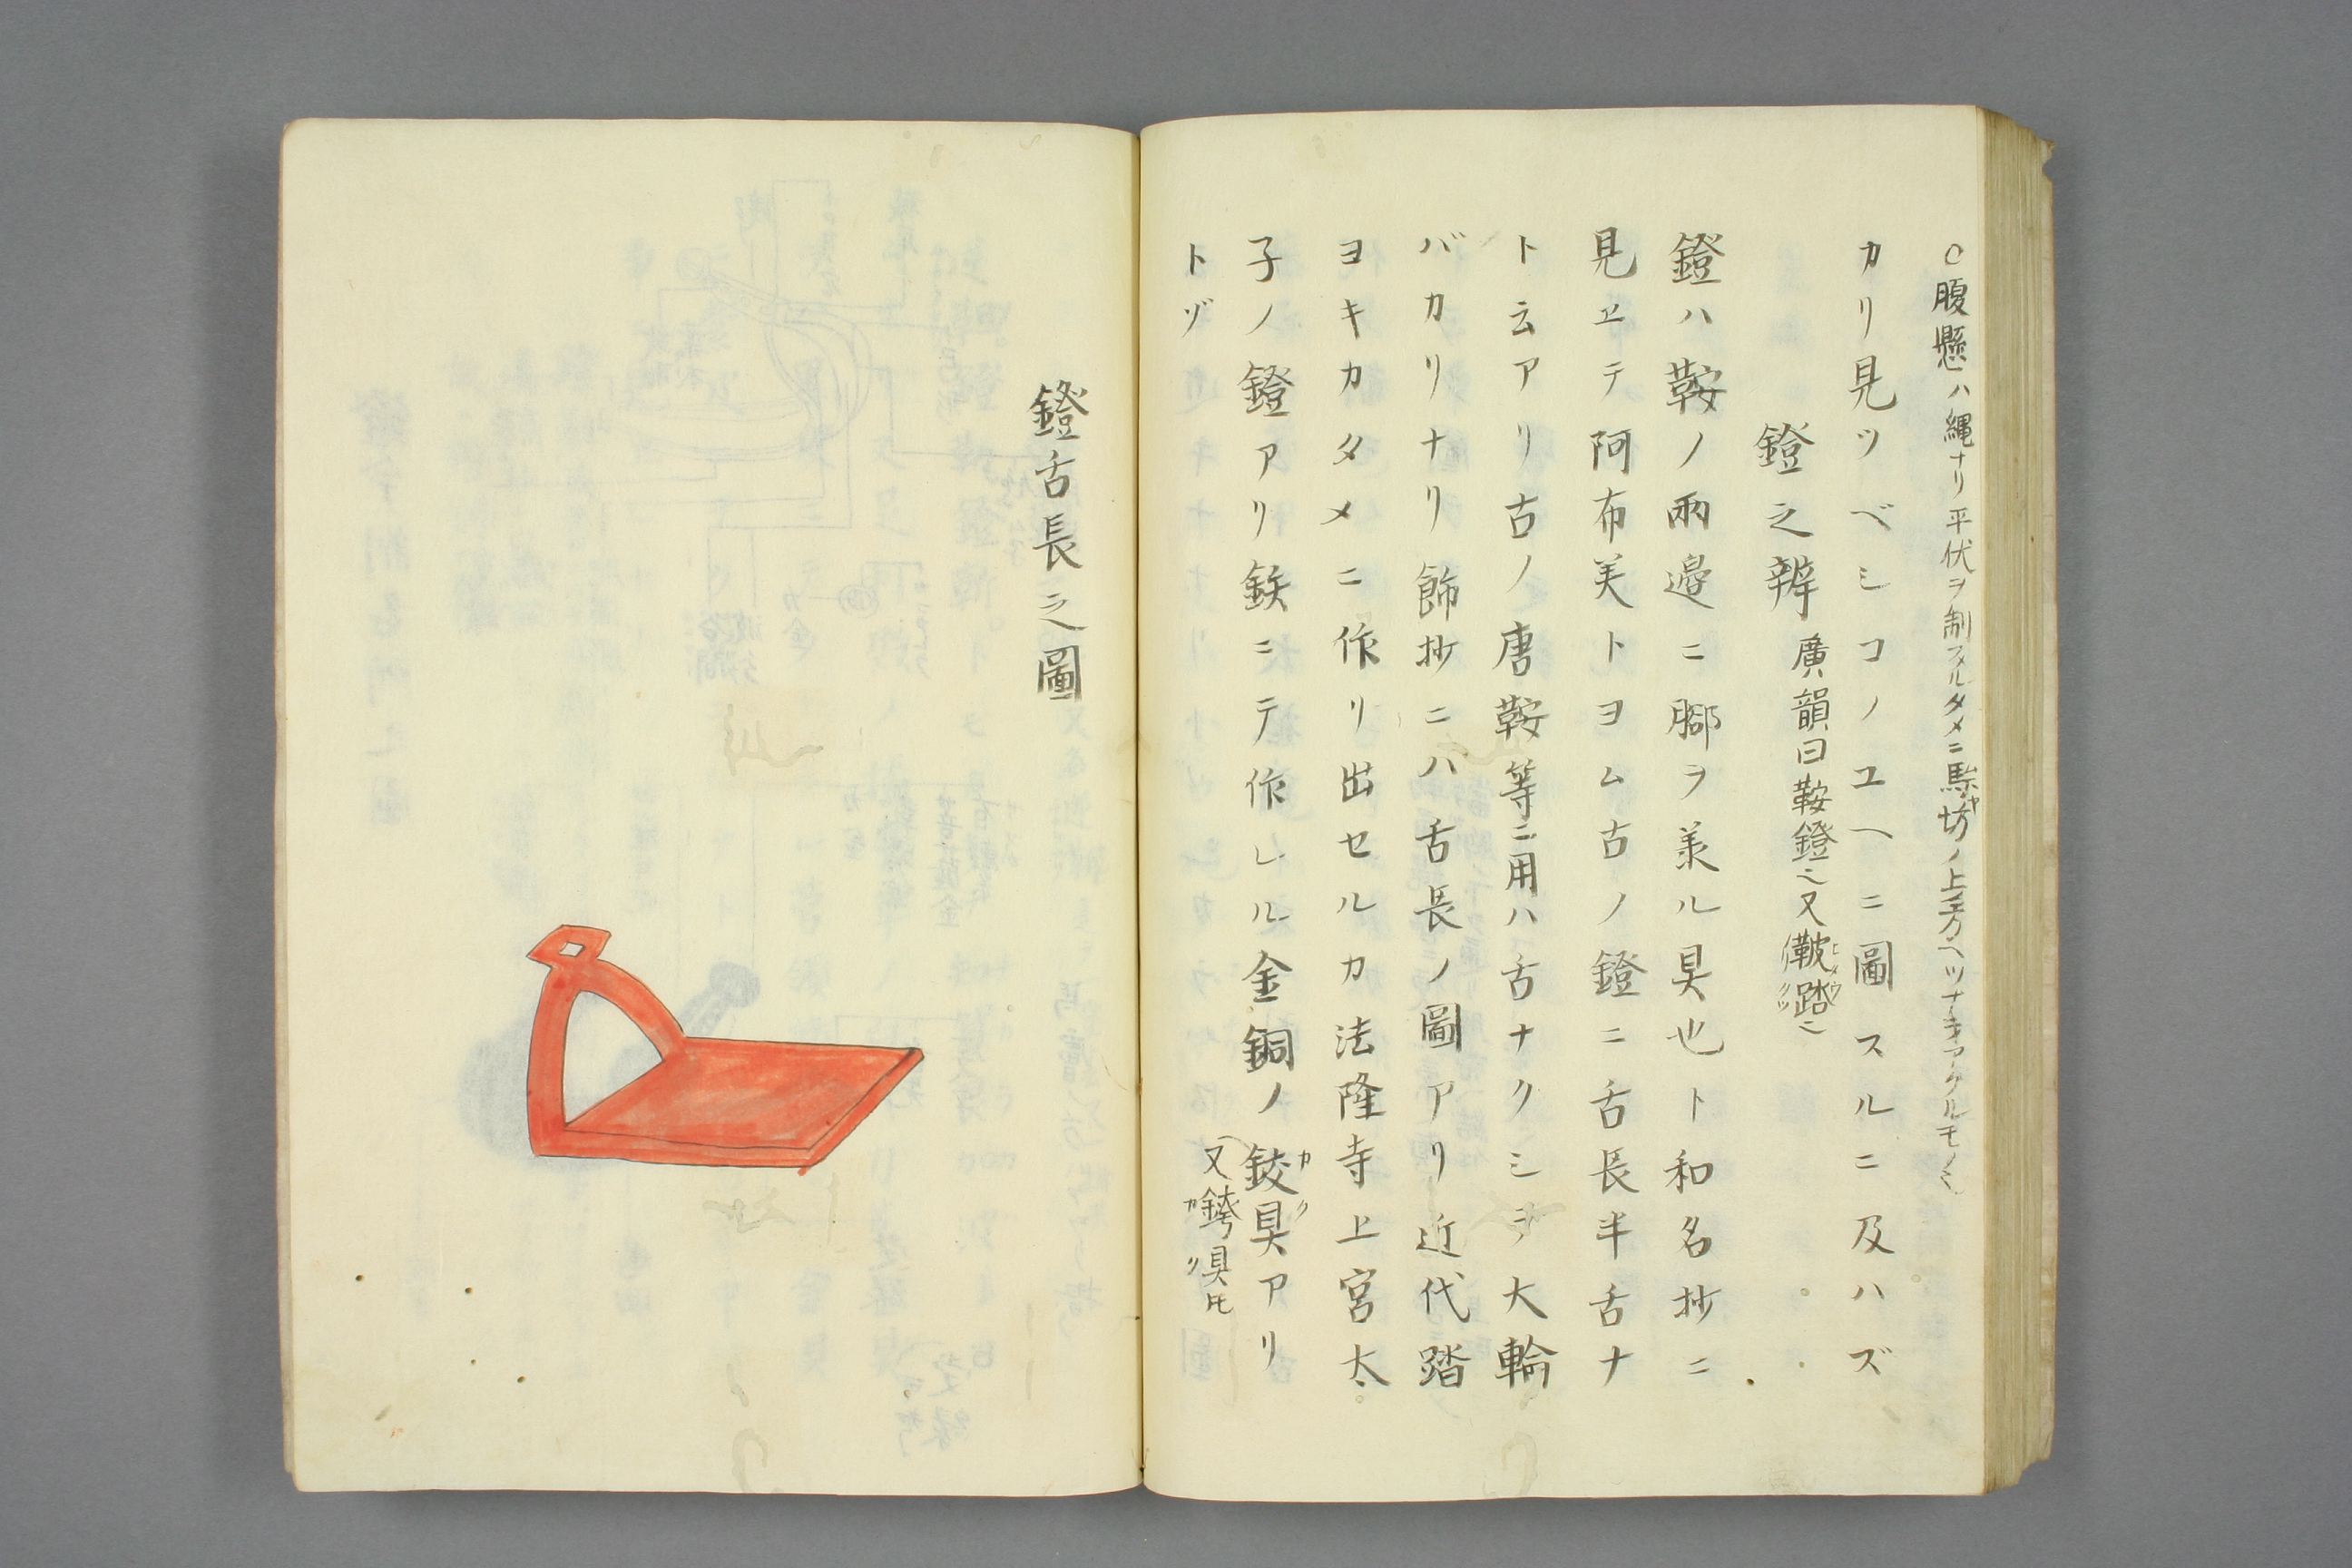 ○腹懸ハ縄ナリ平伏ヲ制スルタメニ馬
坊ノ上ノ方ヘツナキアクルモノ
カリ見ツベシコノユヘニ圖スルニ及ハズ
鐙之辨 廣韻曰鞍鐙
又鞁踏
鐙ハ鞍ノ兩邉ニ脚ヲ羕ル具也ト和名抄ニ
見ヱテ阿布美トヨム古ノ鐙ニ舌長半舌ナ
ト云アリ古ノ唐鞍等ニ用ハ舌ナクシテ大輪
バカリナリ飾抄ニハ舌長ノ圖アリ近代踏
ヨキカタメニ作リ出セルカ法隆寺上宮太
子ノ鐙アリ鉄ニテ作レル金銅ノ鉸具アリ
カク
又銙具トモ
トゾ
鐙舌長之圖